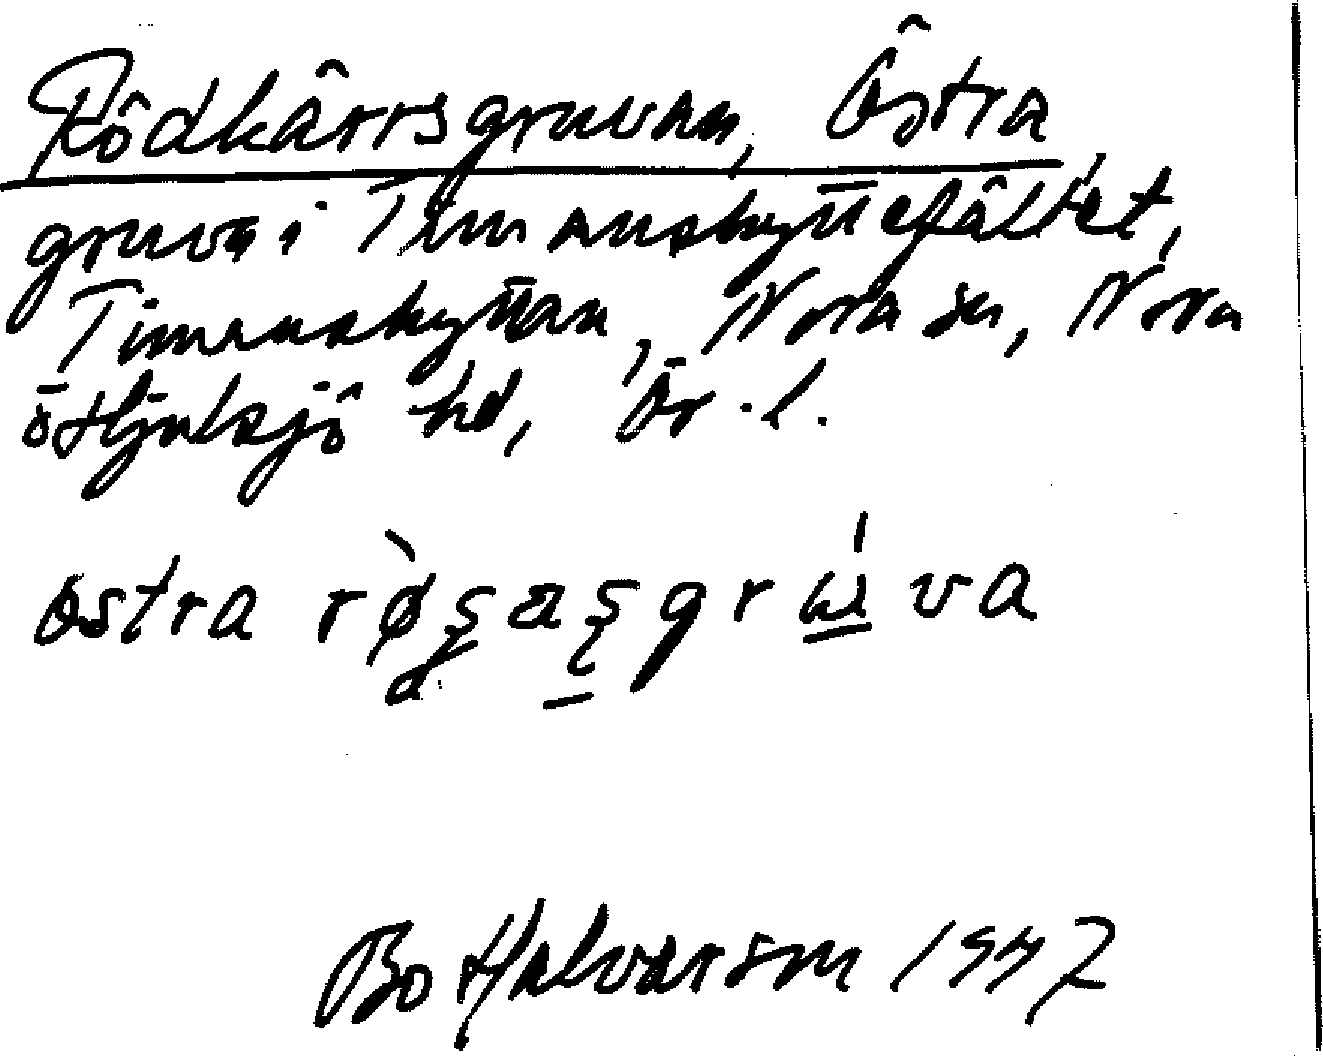 Rödkärrsgruvan, Östra
gruva i Timanshyttefältet,
Timanshyttan, Nora sn, Nora
o Hjulsjö hd, Ör. l.
östra
Bo Halvarson 1997